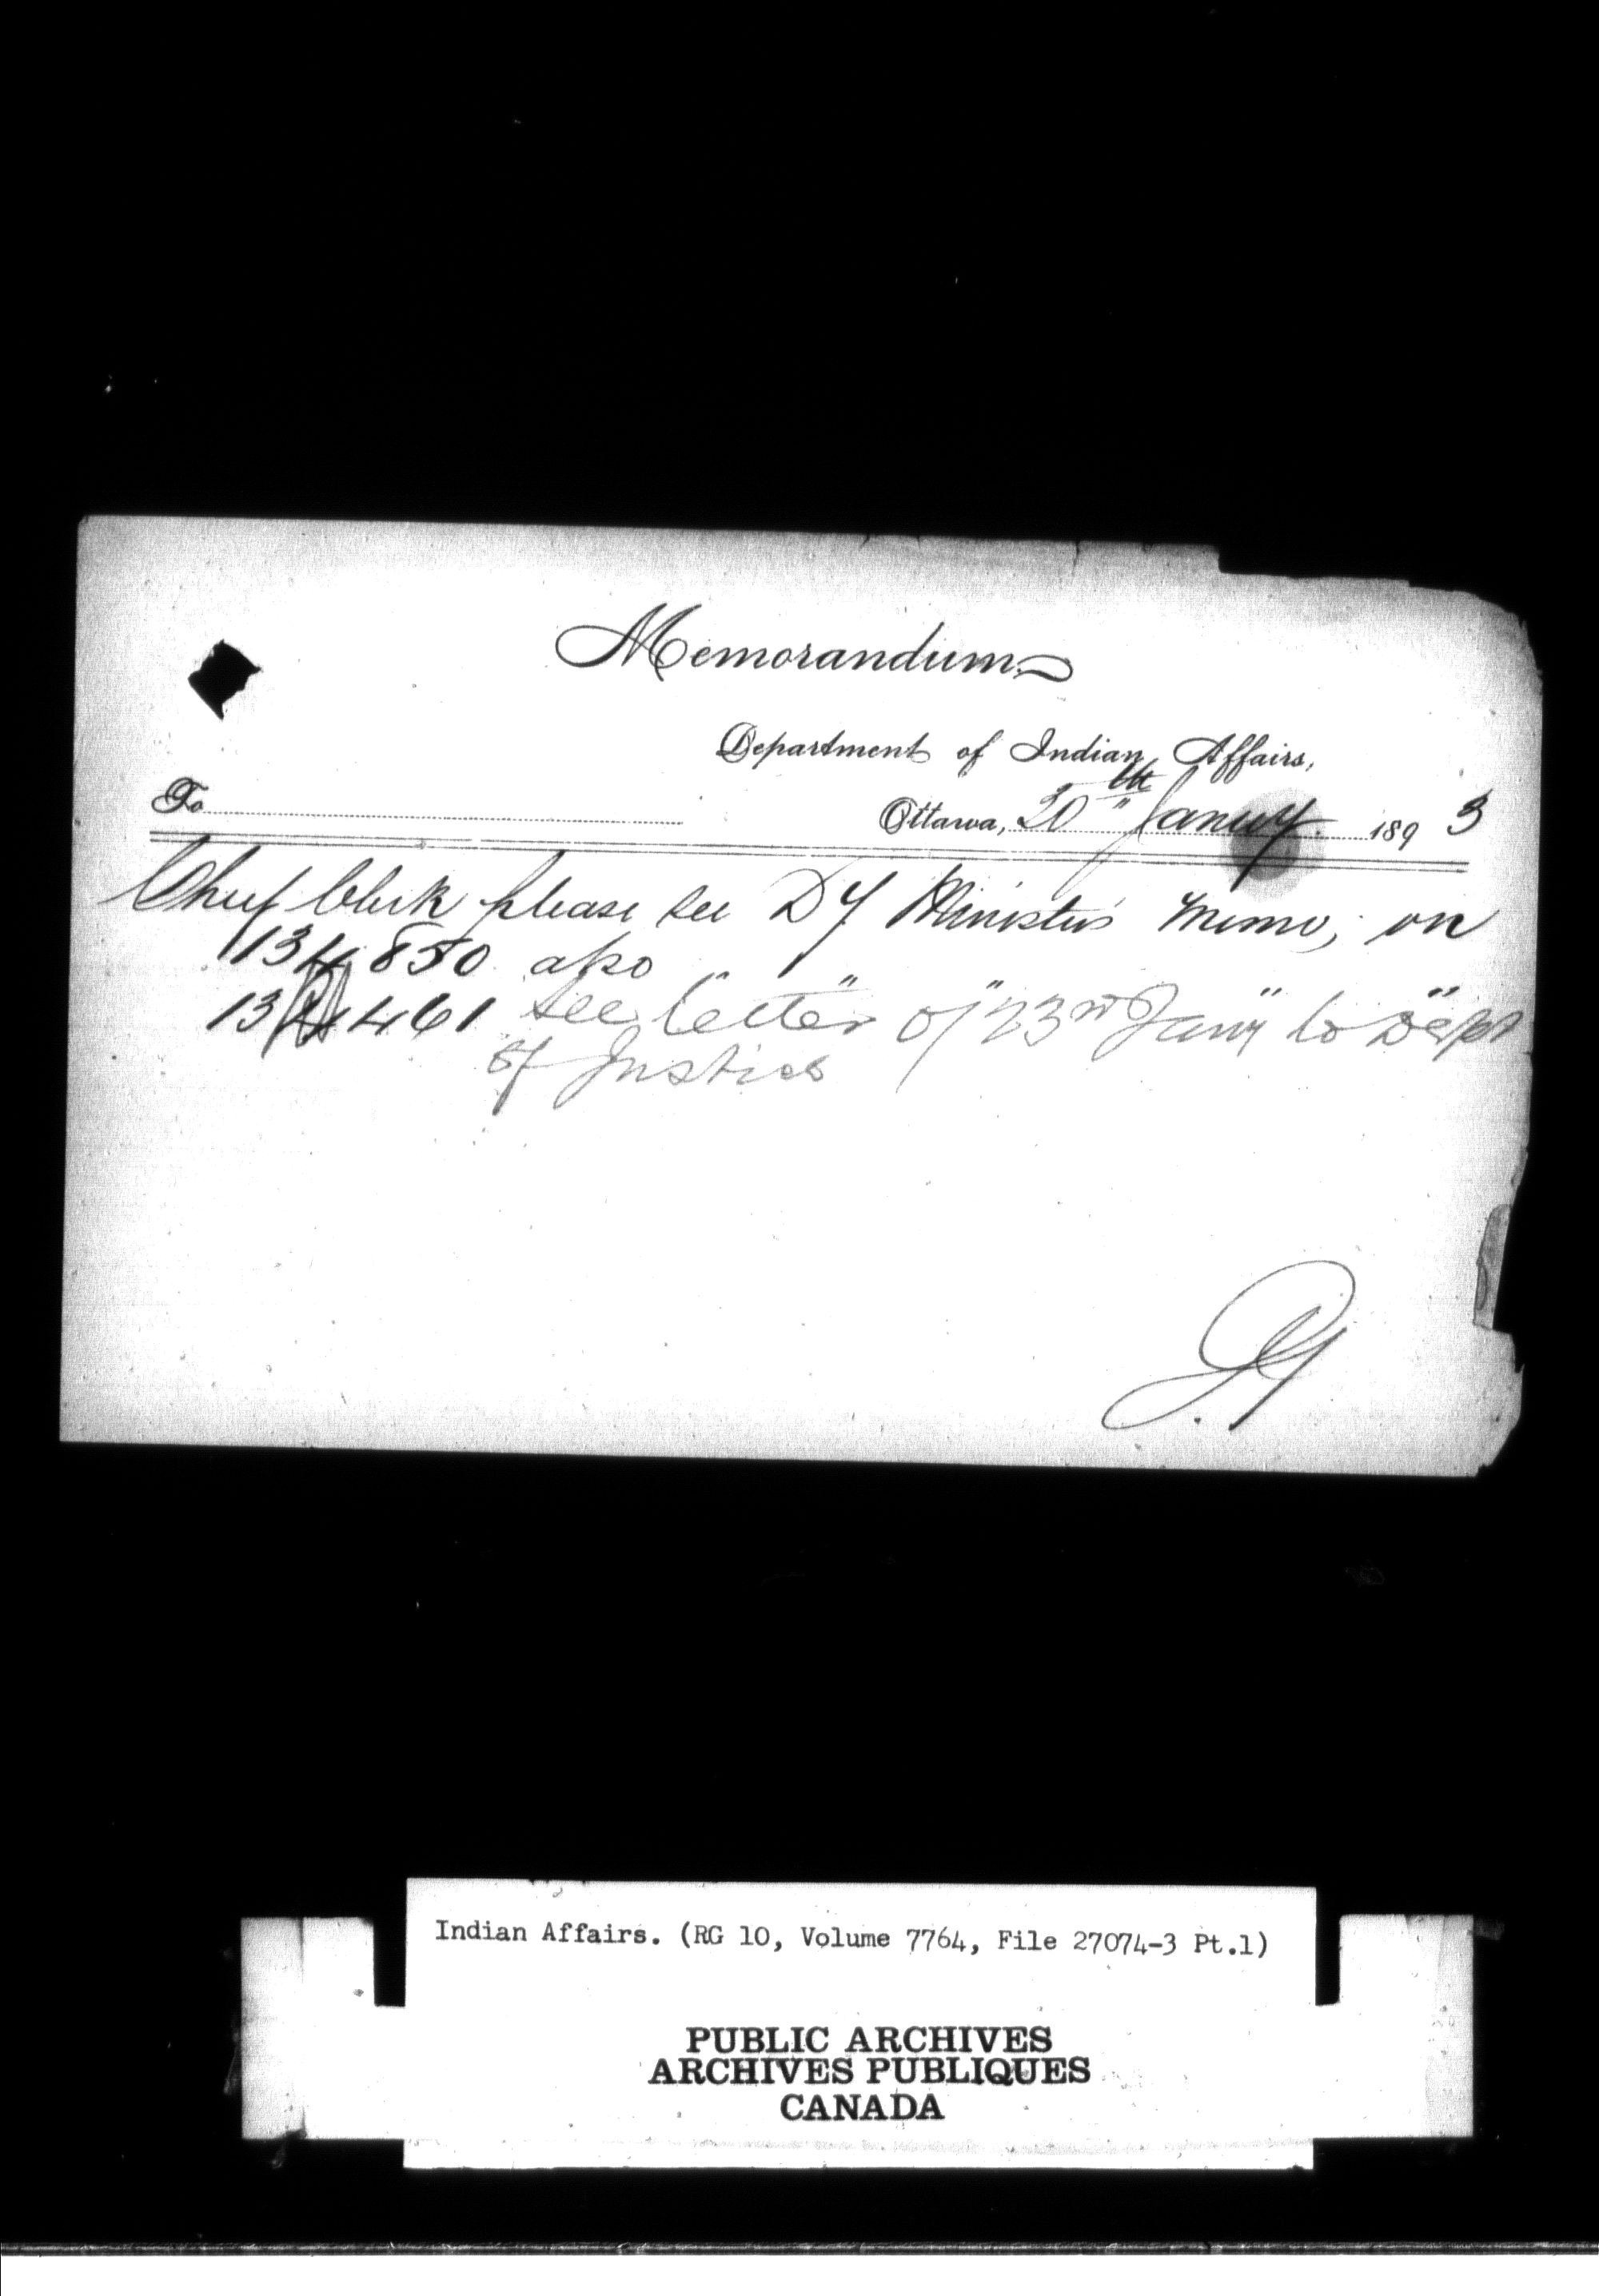 Memorandum.
Department of Indian Affairs,
To Ottawa, 30th January 1893
Chief Clerk please see Dy Minister's memo, on
134850 also
134461 see letter of 23rd Jany to Dept
of Justice
Indian Affairs. (RG 10, Volume 7764, File 27074-3 Pt.1)
PUBLIC ARCHIVES
ARCHIVES PUBLIQUES
CANADA